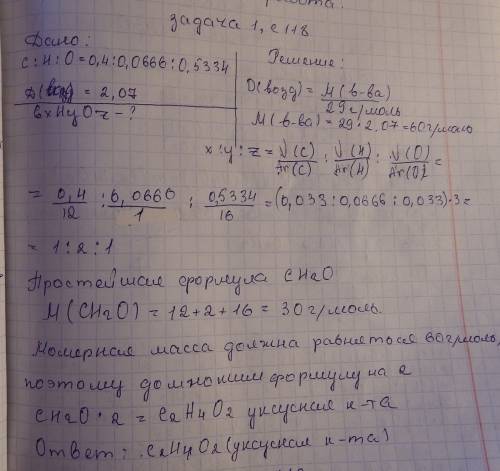 задача 1, с 118
Дано:
C:H:O=0,4:0,0666:0,5334
D(возд) = 2,07
CxHyOz - ?
Решение:
D(возд) = M(в-ва) / 29 г/моль
M(в-ва) = 29 · 2,07 = 60 г/моль
x : y : z = V(C) / Ar(C) : V(H) / Ar(H) : V(O) / Ar(O) =
= 0,4 / 12 : 0,0666 / 1 : 0,5334 / 16 = (0,033 : 0,0666 : 0,033) · 3 =
= 1 : 2 : 1
Простейшая формула CH2O
M(CH2O) = 12+2+16 = 30 г/моль.
Молярная масса должна равняться 60 г/моль,
поэтому домножим формулу на 2
CH2O · 2 = C2H4O2 уксусная к-та
Ответ: C2H4O2 (уксусная к-та)